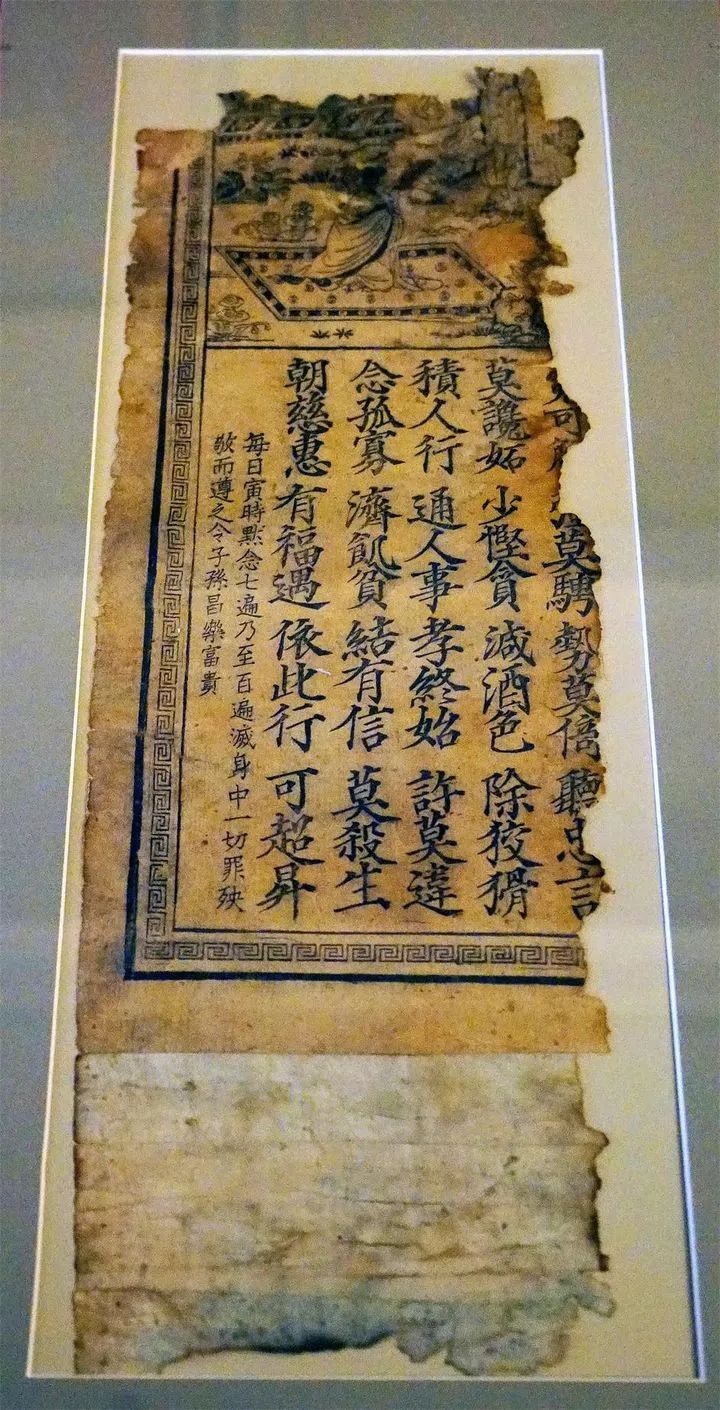 可莫騁 勢莫倚 聽忠言
莫讒妬 少慳貪 減酒色 除狡猾
積人行 通人事 孝終始 許莫違
念孤寡 濟飢貧 結有信 莫殺生
朝慈惠 有福遇 依此行 可超昇
每日寅時點念七遍乃至百遍滅身中一切罪殃
敬而遵之令子孫昌樂富貴